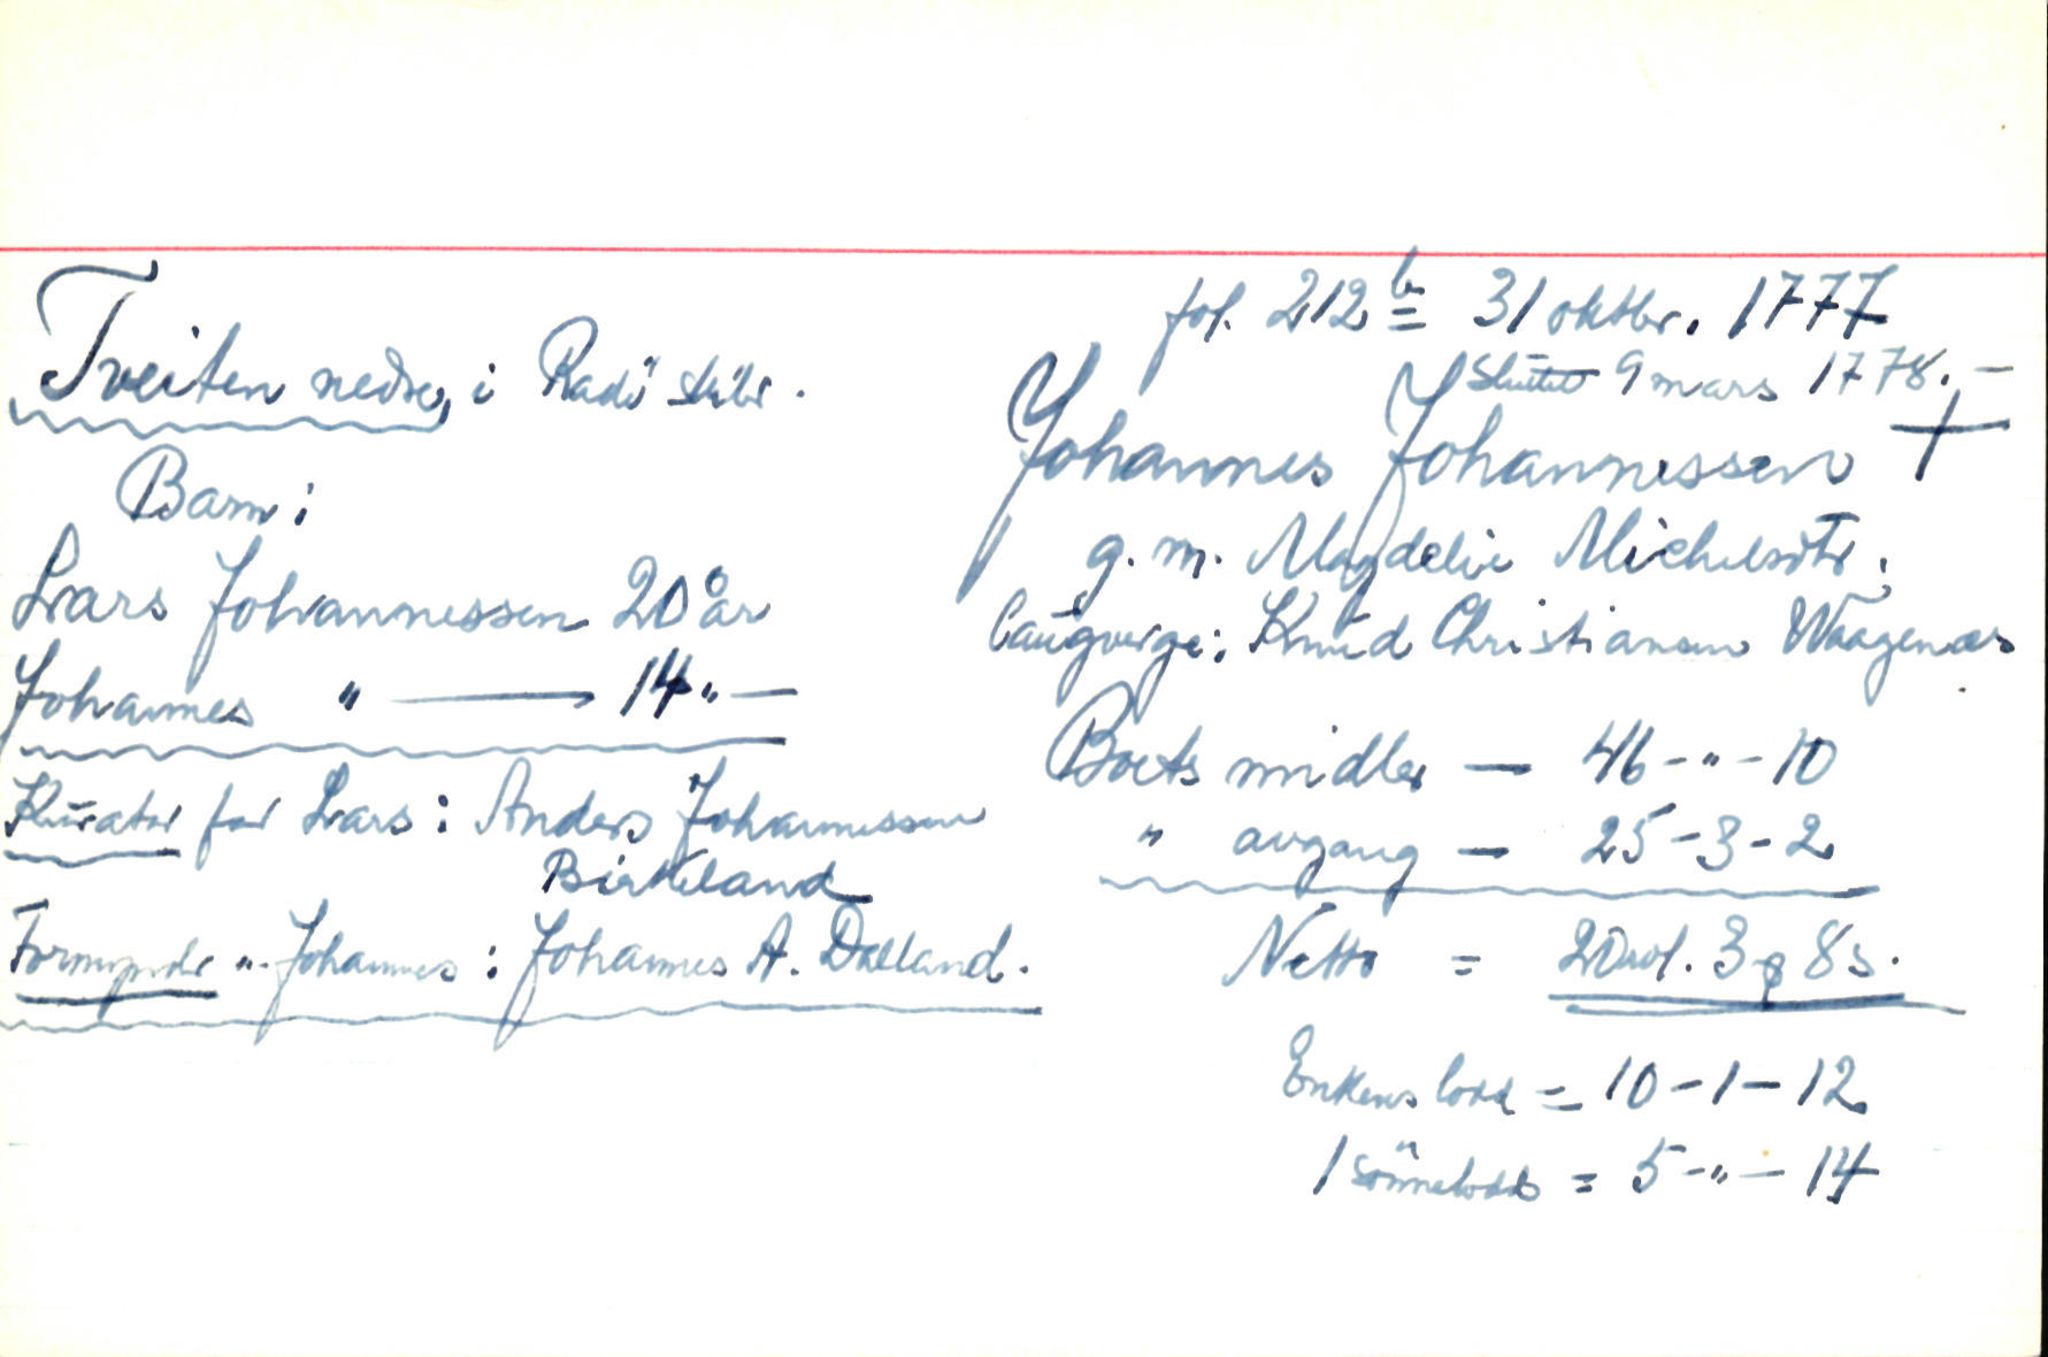 Tveiten nedre, i Radö skibr.
Barn:
Lars Johannessen 20 år
Johannes " — 14 " —
Kurator for Lars: Anders Johannessen
Birkeland
Formynder " Johannes: Johannes A. Dalland.
fol. 212 b = 31 oktbr. 1777
Sluttet 9 mars 1778. —
Johannes Johannessen +
g. m. Magdeli Michelsdtr.
Laugverge: Knud Christiansen Waagenæs
Boets midler — 46 - " - 10
" avgang — 25 - 3 - 2
Netto = 20 rdl. 3 8 s.
Enkens lodd = 10 - 1 - 12
1 sönnelodd = 5 - " - 14